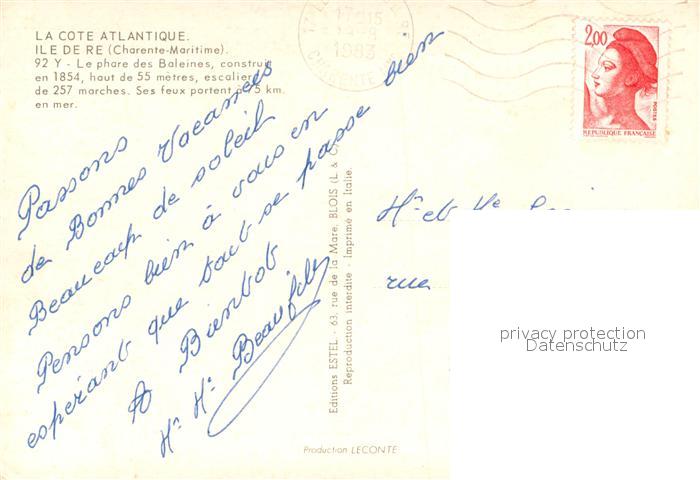 LA COTE ATLANTIQUE.
ILE DE RE (Charente-Maritime).
92 Y - Le phare des Baleines, construit
en 1854, haut de 55 mètres, escalier
de 257 marches. Ses feux portent à 75 km.
en mer.
17H15
1983
CHARENTE
2,00
POSTES
REPUBLIQUE FRANÇAISE
Passons
de Bonnes Vacances
Beaucoup de soleil
Pensons bien à vous en
espérant que tout se passe bien
A Bientot
Mr Me Beaufils
Editions ESTEL - 63, rue de la Mare, BLOIS (L. & C.)
Reproduction interdite - Imprimé en Italie.
Mr et Me
rue
privacy protection
Datenschutz
Production LECONTE